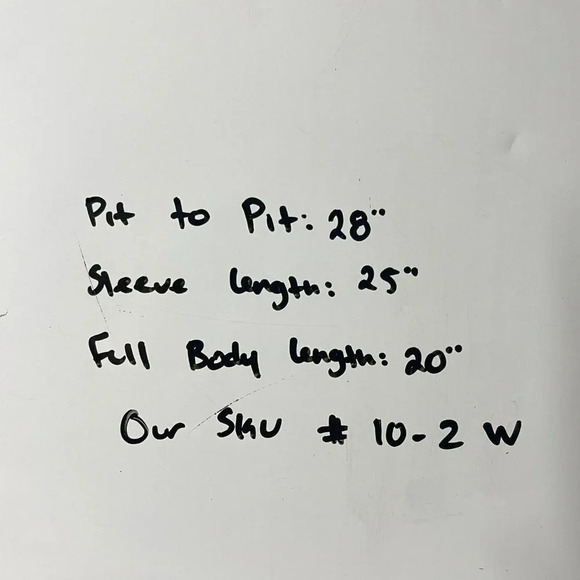 Pit to Pit: 28"
Sleeve length: 25"
Full Body length: 20"
Our SKU # 10-2 W